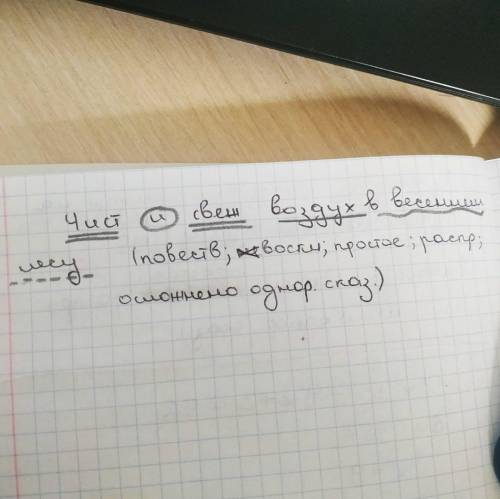 Чист и свеж воздух в весеннем
лесу (повеств; воскл; простое; распр;
осложнено однор. сказ.)